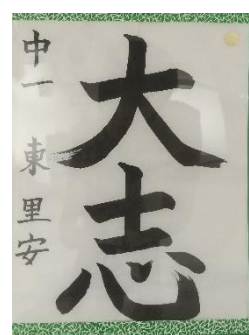 大志
中一 東 里安